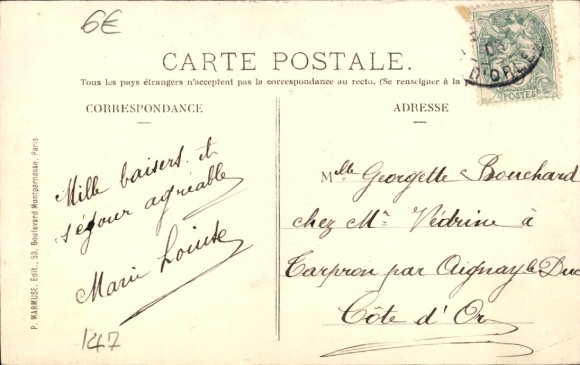 6€
CARTE POSTALE.
Tous les pays étrangers n'acceptent pas la correspondance au recto. (Se renseigner à la
CORRESPONDANCE
ADRESSE
Mille baisers et
séjour agréable
Marie Louise
Mlle Georgette Bouchard
chez Mr Védrine à
Tarpron par Aignay le Duc
Côte d'Or
P. MARMUSE, Edit., 53, Boulevard Montparnasse, Paris
147
POSTES
D'ORSE